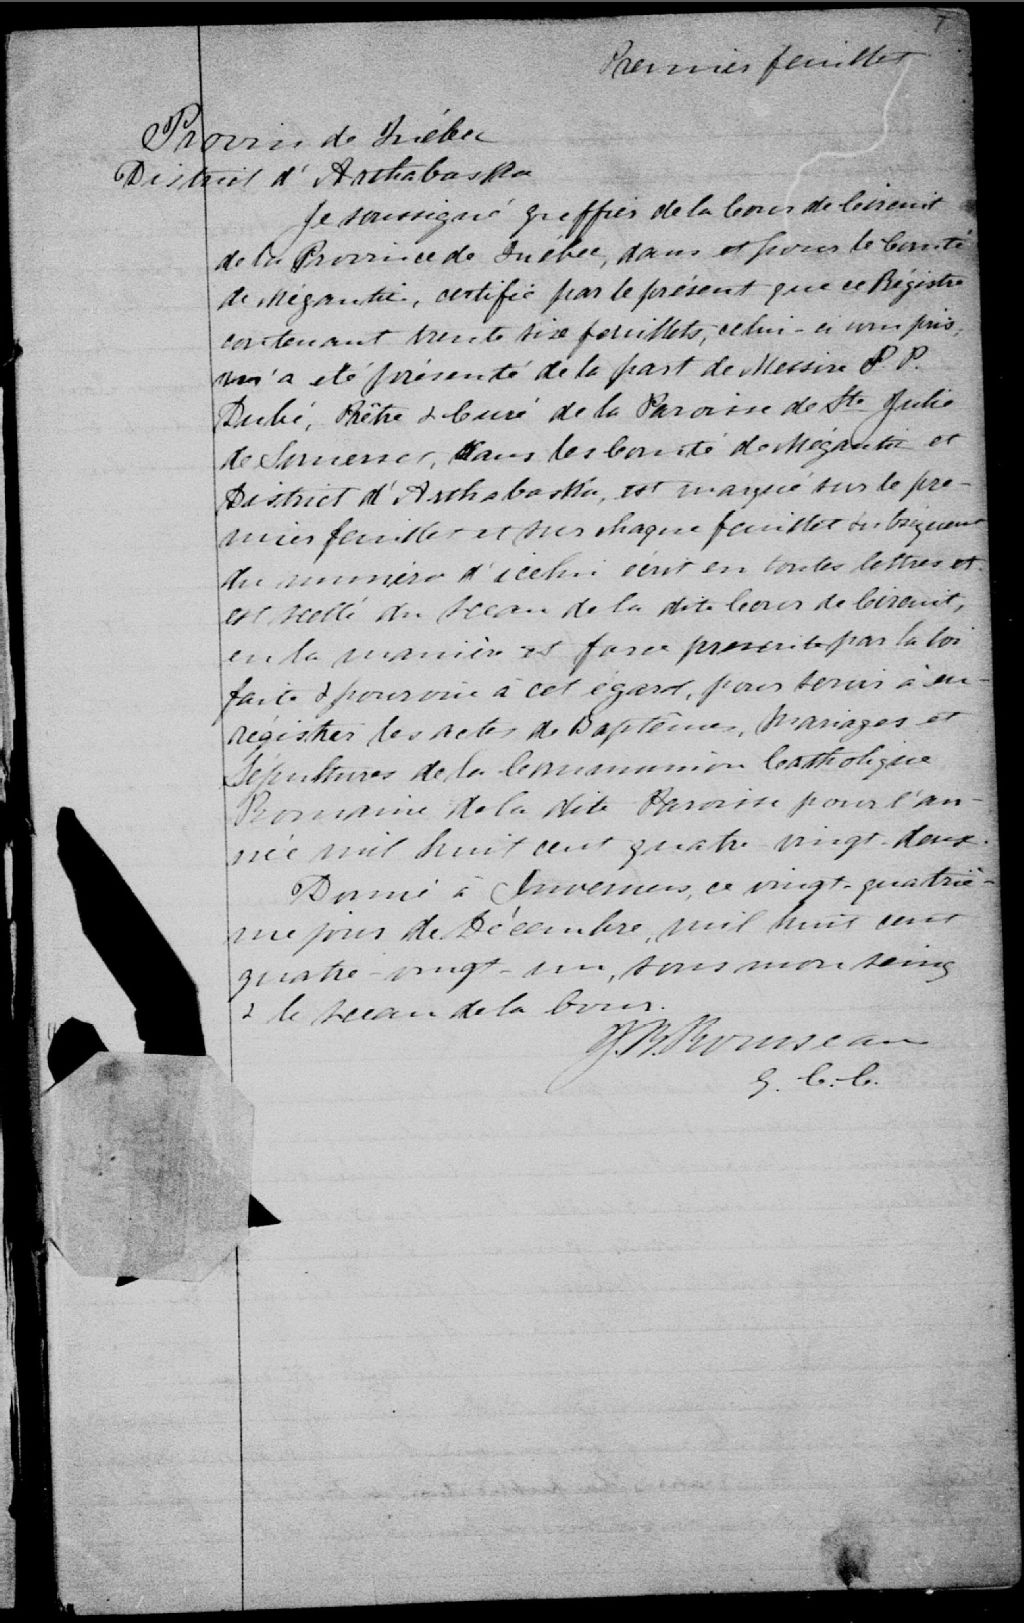 Premier feuillet
Provin de Québec
District d'Arthabaska
Je soussigné greffier de la Cour de Circuit
de la Province de Québec, dans et pour le Comté
de Mégantic, certifie par le présent que ce Régistre
contenant trente six feuillets, celui-ci compris,
m'a été présenté de la part de Messire P. P.
Dubé, Prêtre & Curé de la Paroisse de Ste Julie
de Somerset, dans les Comté de Mégantic et
District d'Arthabaska, est marqué sur le pre-
mier feuillet et sur chaque feuillet subséquent
du numéro d'icelui écrit en toutes lettres et
est scellé du sceau de la dite Cour de Circuit,
en la manière et force prescrite par la loi
faite & pourvue à cet égard, pour servir à en-
régistrer les actes de Baptêmes, Mariages et
Sépultures de la Communion Catholique
Romaine de la dite Paroisse pour l'an-
née mil huit cent quatre vingt-deux.
Donné à Inverness, ce vingt-quatriè-
me jour de Décembre, mil huit cent
quatre-vingt-un, sous mon seing
& le sceau de la Cour.
Rousseau
G. C. C.